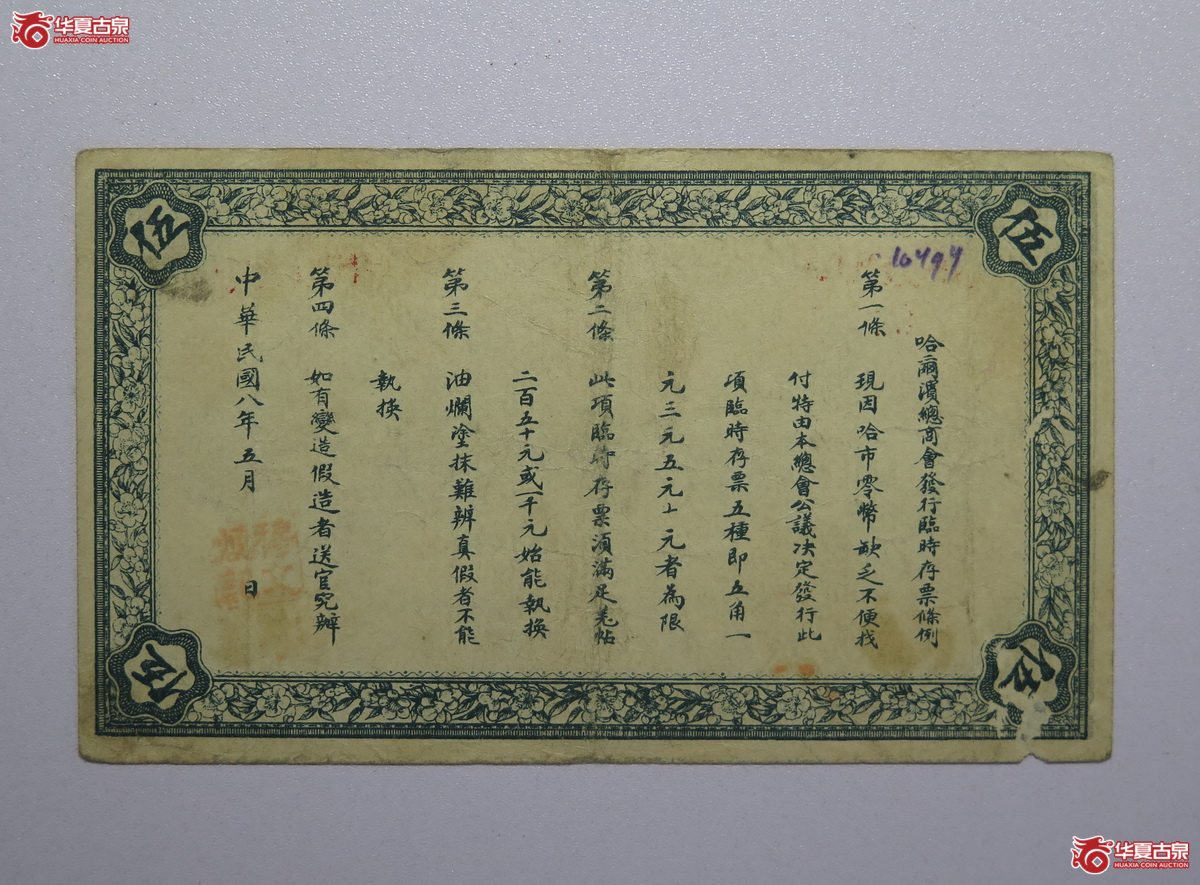 华夏古泉
HUAXIA COIN AUCTION
伍
伍
哈爾濱總商會發行臨時存票條例
第一條 現因哈市零幣缺乏不便找
付特由本總會公議决定發行此
項臨時存票五種即五角一
元三元五元十元者為限
第二條 此項臨時存票須滿足羌帖
二百五十元或一千元始能執換
第三條 油爛塗抹難辨真假者不能
執換
第四條 如有變造假造者送官究辦
中華民國八年五月 日
伍
伍
华夏古泉
HUAXIA COIN AUCTION